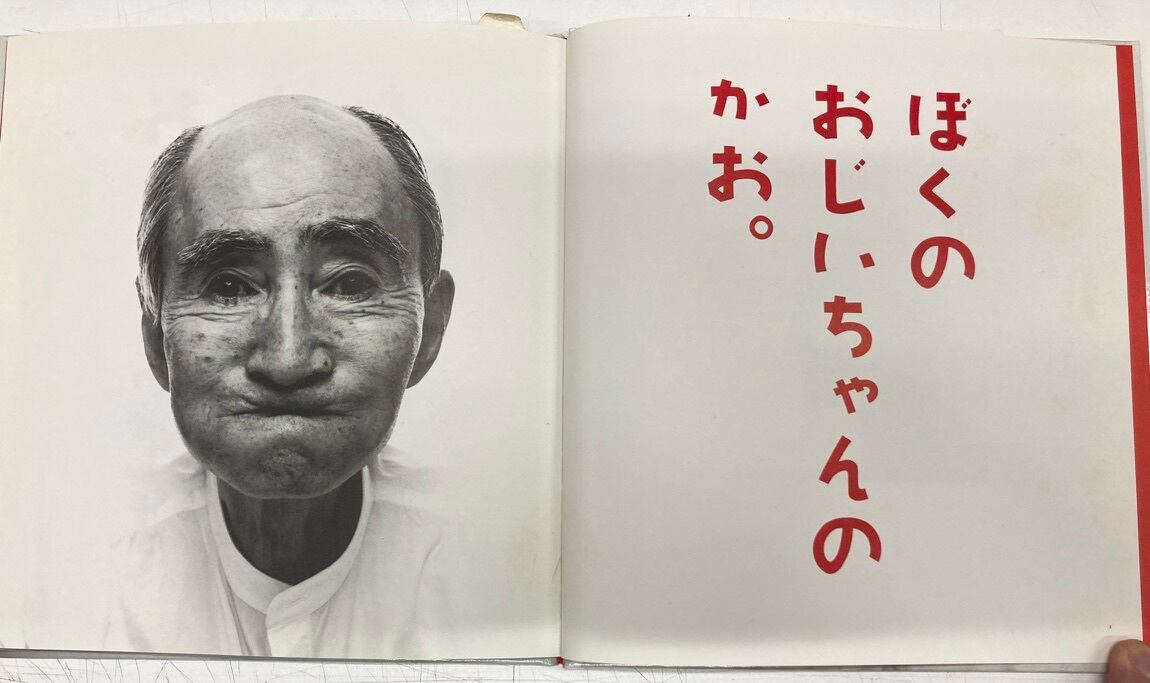 ぼくの
おじいちゃんの
かお。